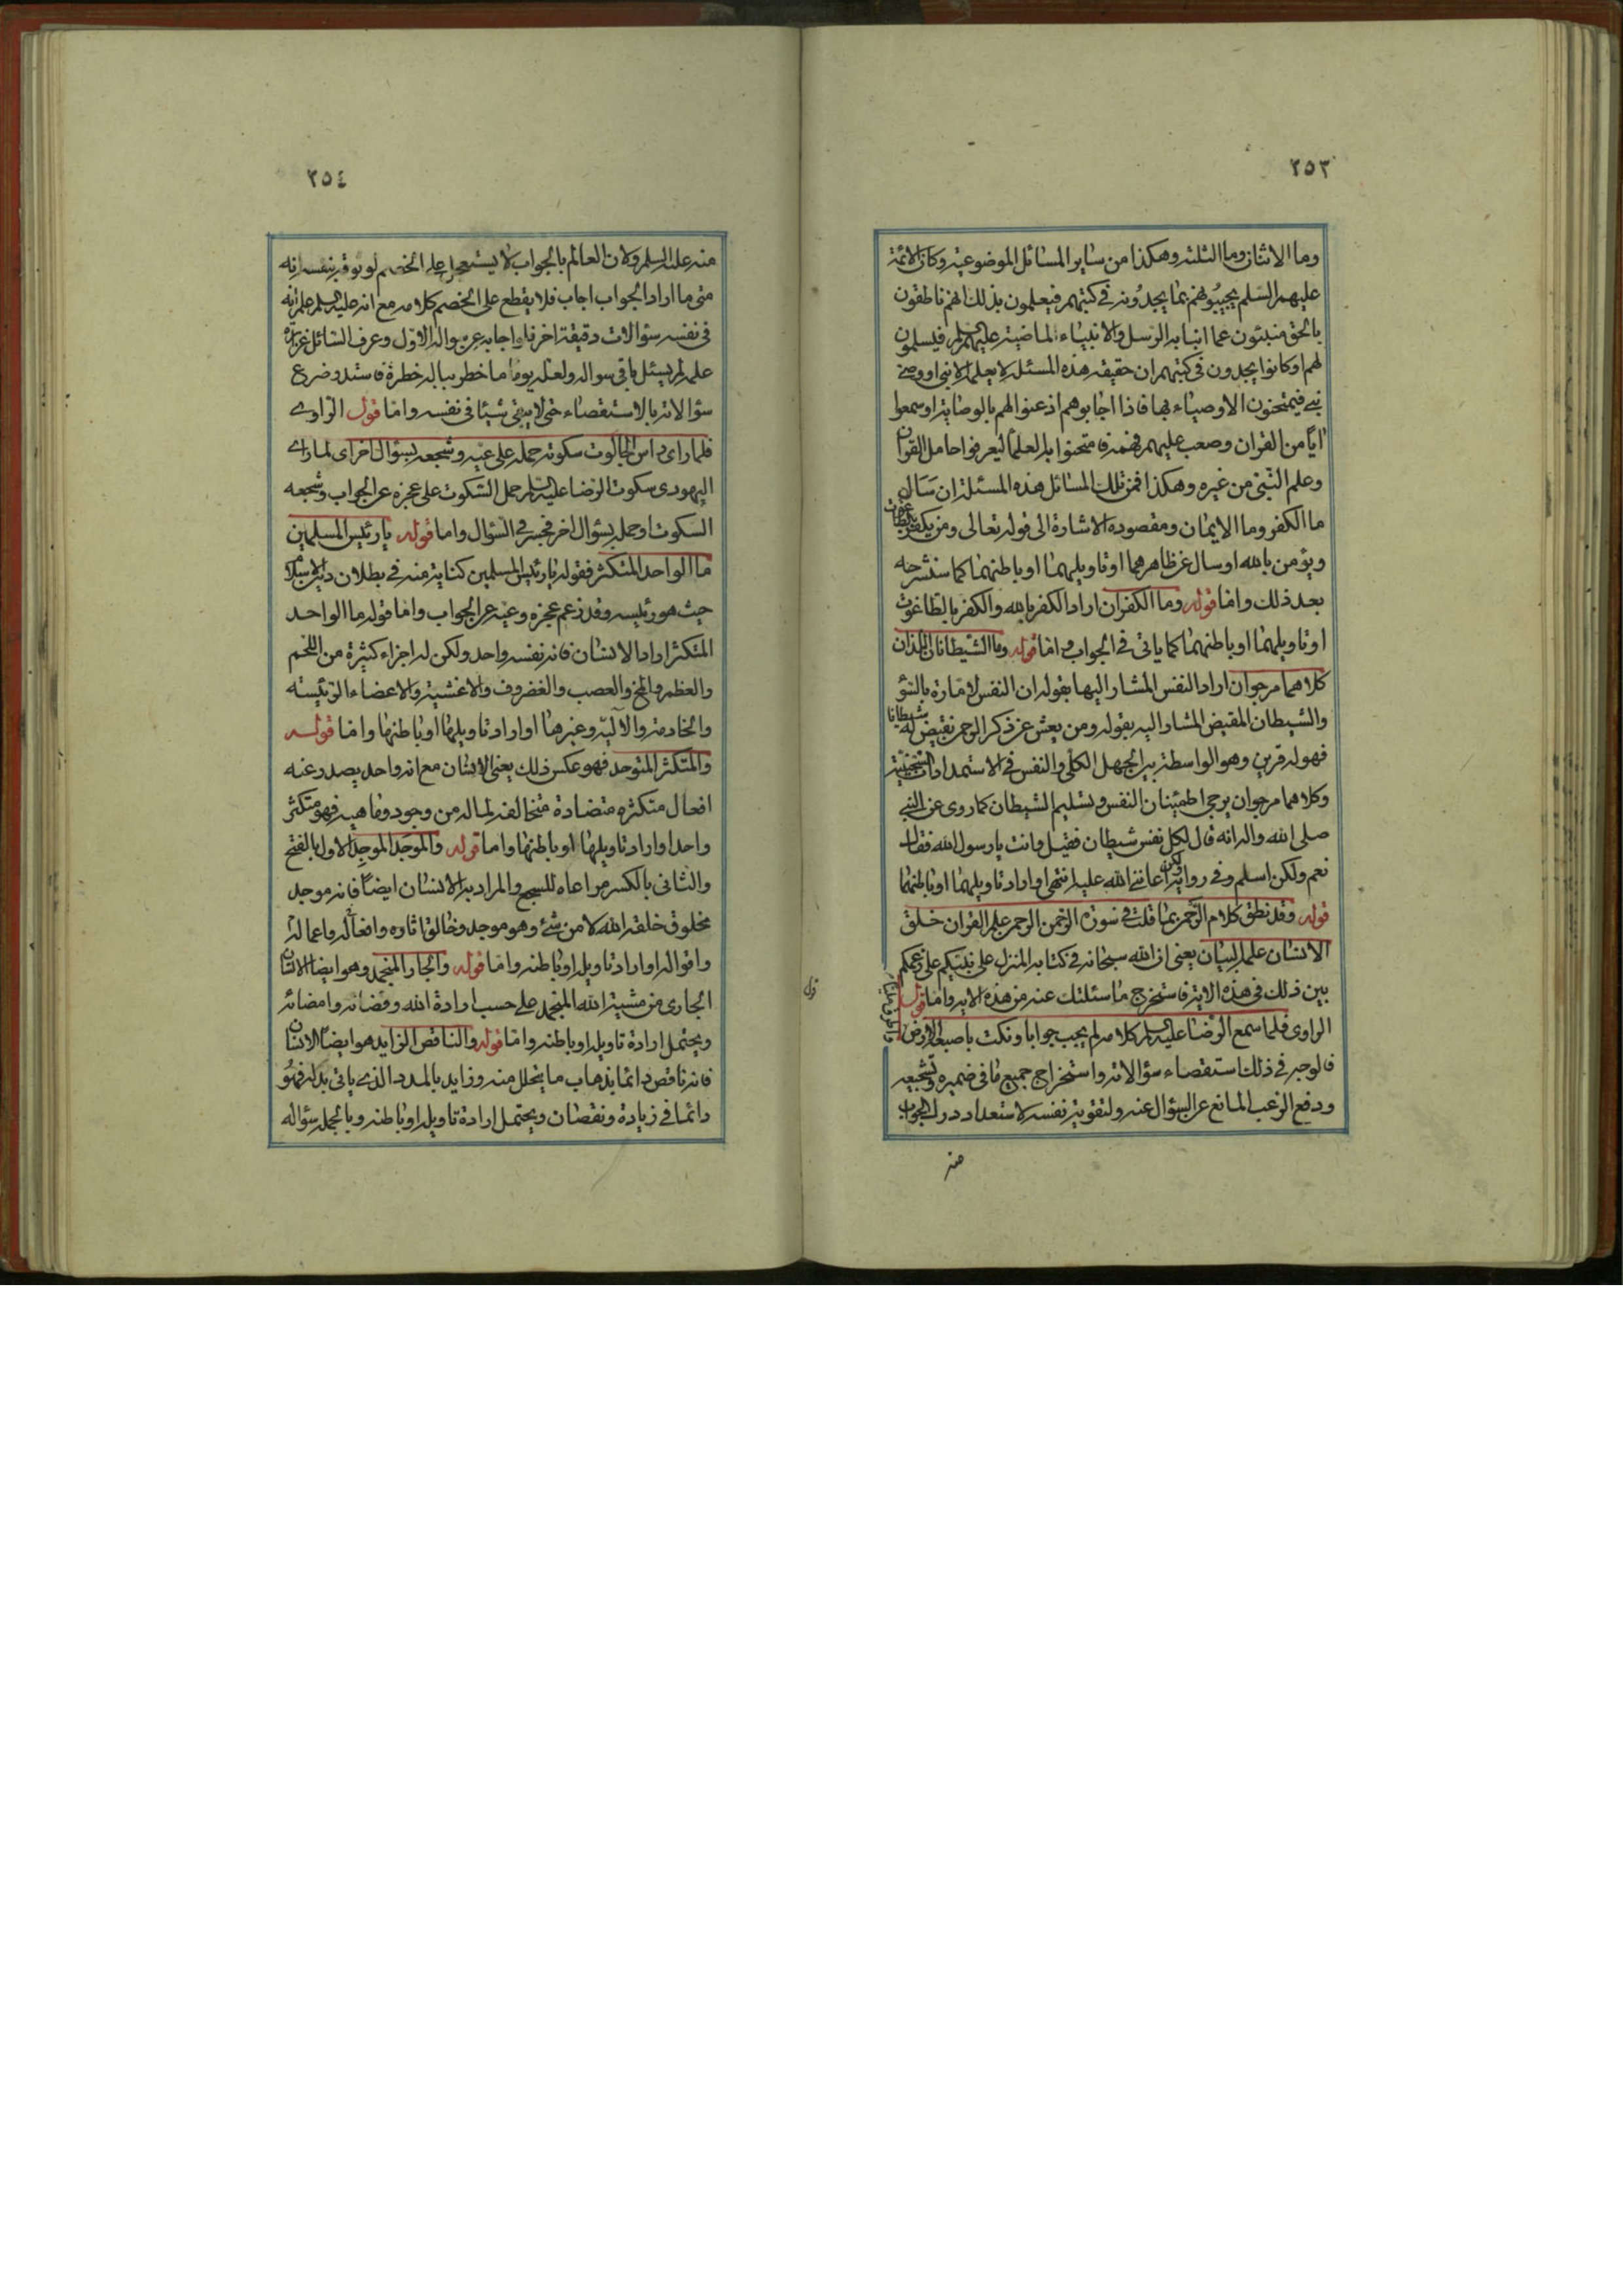 ٢٥٣
وما الاثنان وما الثلثه وهكذا من ساير المسائل الموضوعية وكان الائمة
عليهم السلم يجيبونهم بما يجدونه في كتبهم فيعلمون بذلك انهم ناطقون
بالحق منبئون عما انبا به الرسل والانبياء الماضية عليهم السلم فيسلمون
لهم او كانوا يجدون في كتبهم ان حقيقة هذه المسئلة لا يعلمها الا نبي او وصي
نبي فيمتحنون الاوصياء بها فاذا اجابوهم اذعنوا لهم بالوصاية او سمعوا
ايا من القران وصعب عليهم فهمه فامتحنوا به العلماء ليعرفوا حامل القران
وعلم النبي من غيره وهكذا فمن تلك المسائل هذه المسئلة ان سال
ما الكفر وما الايمان ومقصوده الاشارة الى قوله تعالى ومن يكفر بالطاغوت
ويؤمن بالله او سال عن ظاهرهما او تاويلهما او باطنهما كما سنشرحه
بعد ذلك واما قوله وما الكفران اراد الكفر بالله والكفر بالطاغوت
او تاويلهما او باطنهما كما ياتي في الجواب واما قوله وما الشيطانان اللذان
كلاهما مرجوان اراد النفس المشار اليها بقوله ان النفس لامارة بالسؤ
والشيطان المقيض المشار اليه بقوله ومن يعش عن ذكر الرحمن نقيض له شيطانا
فهو له قرين وهو الواسطة بين الجهل الكلي والنفس في الاستمدادات الشخصية
وكلاهما مرجوان يرجى اطمينان النفس وتسليم الشيطان كما روى عن النبي
صلى الله واله انه قال لكل نفس شيطان فقيل وانت يا رسول الله فقال
نعم ولكن اسلم وفي رواية لكن اعانني الله عليه انتهى او اراد تاويلهما او باطنهما
قوله وقد نطق كلام الرحمن بما قلت في سورة الرحمن الرحمن علم القران خلق
الانسان علمه البيان يعني ان الله سبحانه في كتابه المنزل على نبيكم على زعمكم
بين ذلك في هذه الاية فاستخرج ما سئلتك عنه من هذه الاية واما قول
الراوى فلما سمع الرضا عليه السلم كلامه لم يجب جوابا ونكت باصبعه الارض
فالوجه في ذلك استقصاء سؤالاته واستخراج جميع ما في ضميره وتشجيعه
ودفع الرعب المانع عن السؤال عنه ولتقوية نفسه لاستعداد درك الجواب
منه
٢٥٤
منه عليه السلم ولان العالم بالجواب لا يستعجل على الخصم لوثوقه بنفسه انه
متى ما اراد الجواب اجاب فلا يقطع على الخصم كلامه مع انه عليه السلم علم انه
في نفسه سؤالات دقيقة اخر فلو اجابه عن سؤاله الاول وعرف السائل غزارة
علمه لم يسئل باقي سواله ولعله يوما ما خطر بباله خطرة فاستدو ضرع
سؤالاته بالاستقصاء حتى لا يبقى شيئا في نفسه واما قول الراوي
فلما راى راس الجالوت سكوته حمله على عيه وشجعه بسؤال اخر اى لما راى
اليهودى سكوت الرضا عليه السلم حمل السكوت على عجزه عن الجواب وشجعه
السكوت او حمله بسؤال اخر فجسر في السؤال واما قوله يا رئيس المسلمين
ما الواحد المتكثر فقوله يا رئيس المسلمين كناية منه في بطلان دين الاسلام
حيث هو رئيسه وقد زعم عجزه وعيه عن الجواب واما قوله ما الواحد
المتكثر اراد الانسان فانه نفسه واحد ولكن له اجزاء كثيرة من اللحم
والعظم والمخ والعصب والغضروف والاغشية والاعضاء الرئيسة
والخادمة والالية وغيرها او اراد تاويلها او باطنها واما قوله
والمتكثر المتوحد فهو عكس ذلك يعني الانسان مع انه واحد يصدر عنه
افعال متكثره متضادة متخالفة لما له من وجود وماهية فهو متكثر
واحد او اراد تاويلها او باطنها واما قوله والموجد الموجد الاول بالفتح
والثاني بالكسر مراعاه للسجع والمراد به الانسان ايضا فانه موجد
مخلوق خلقه الله لا من شئ وهو موجد وخالق اثاره وافعاله واعماله
واقواله او اراد تاويله او باطنه واما قوله والجار المنجمد وهو ايضا الانسان
الجاري من مشية الله المنجمد على حسب ارادة الله وقضائه وامضائه
ويحتمل ارادة تاويله او باطنه واما قوله والناقص الزايد هو ايضا الانسان
فانه ناقص دائما بذهاب ما يتحلل منه وزايد بالمدد الذي ياتي بدله فهو
دائما في زيادة ونقصان ويحتمل ارادة تاويله او باطنه وبالجملة سؤاله